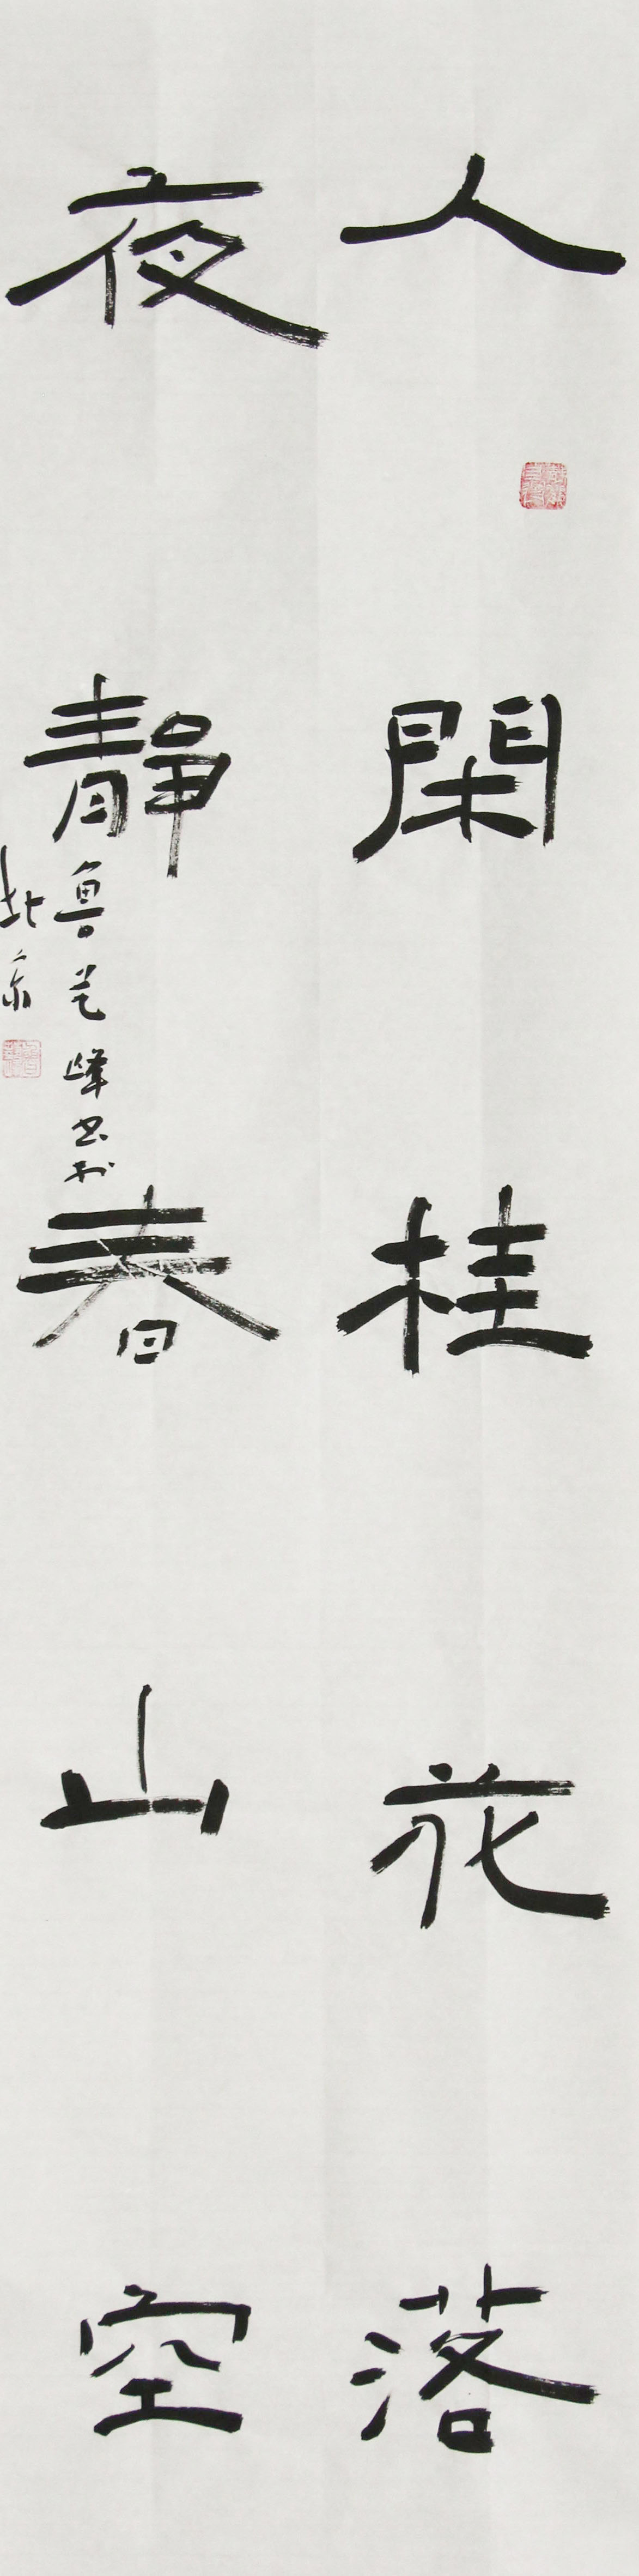 人閑桂花落
夜靜春山空
魯艺峰书於
北京